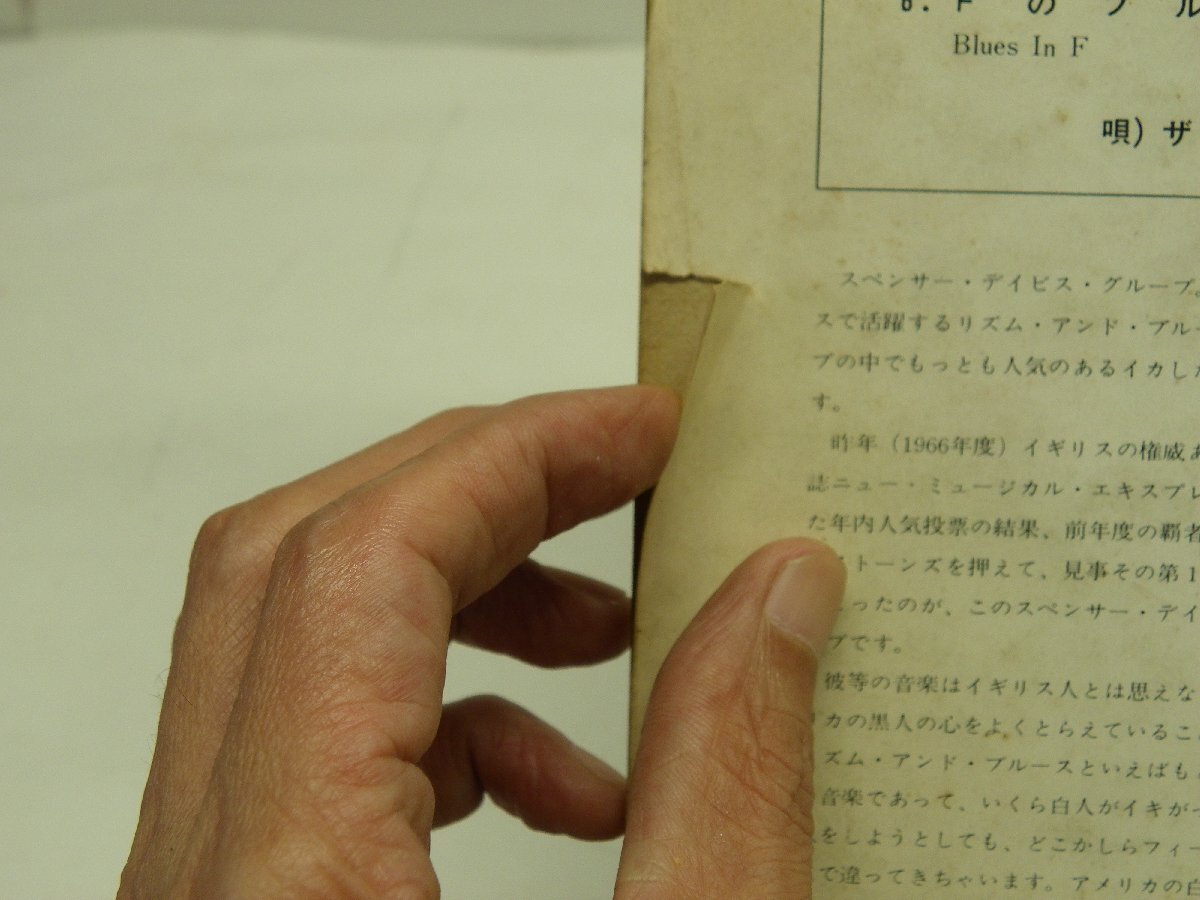 6. F の ブ ル
Blues In F
唄）ザ
スペンサー・デイビス・グループ。
スで活躍するリズム・アンド・ブルー
プの中でもっとも人気のあるイカした
す。
昨年（1966年度）イギリスの権威あ
誌ニュー・ミュージカル・エキスプレ
た年内人気投票の結果、前年度の覇者
トーンズを押えて、見事その第1
ったのが、このスペンサー・デイ
プです。
彼等の音楽はイギリス人とは思えな
リカの黒人の心をよくとらえているこ
ズム・アンド・ブルースといえばも
音楽であって、いくら白人がイキが
をしようとしても、どこかしらフィー
で違ってきちゃいます。アメリカの白